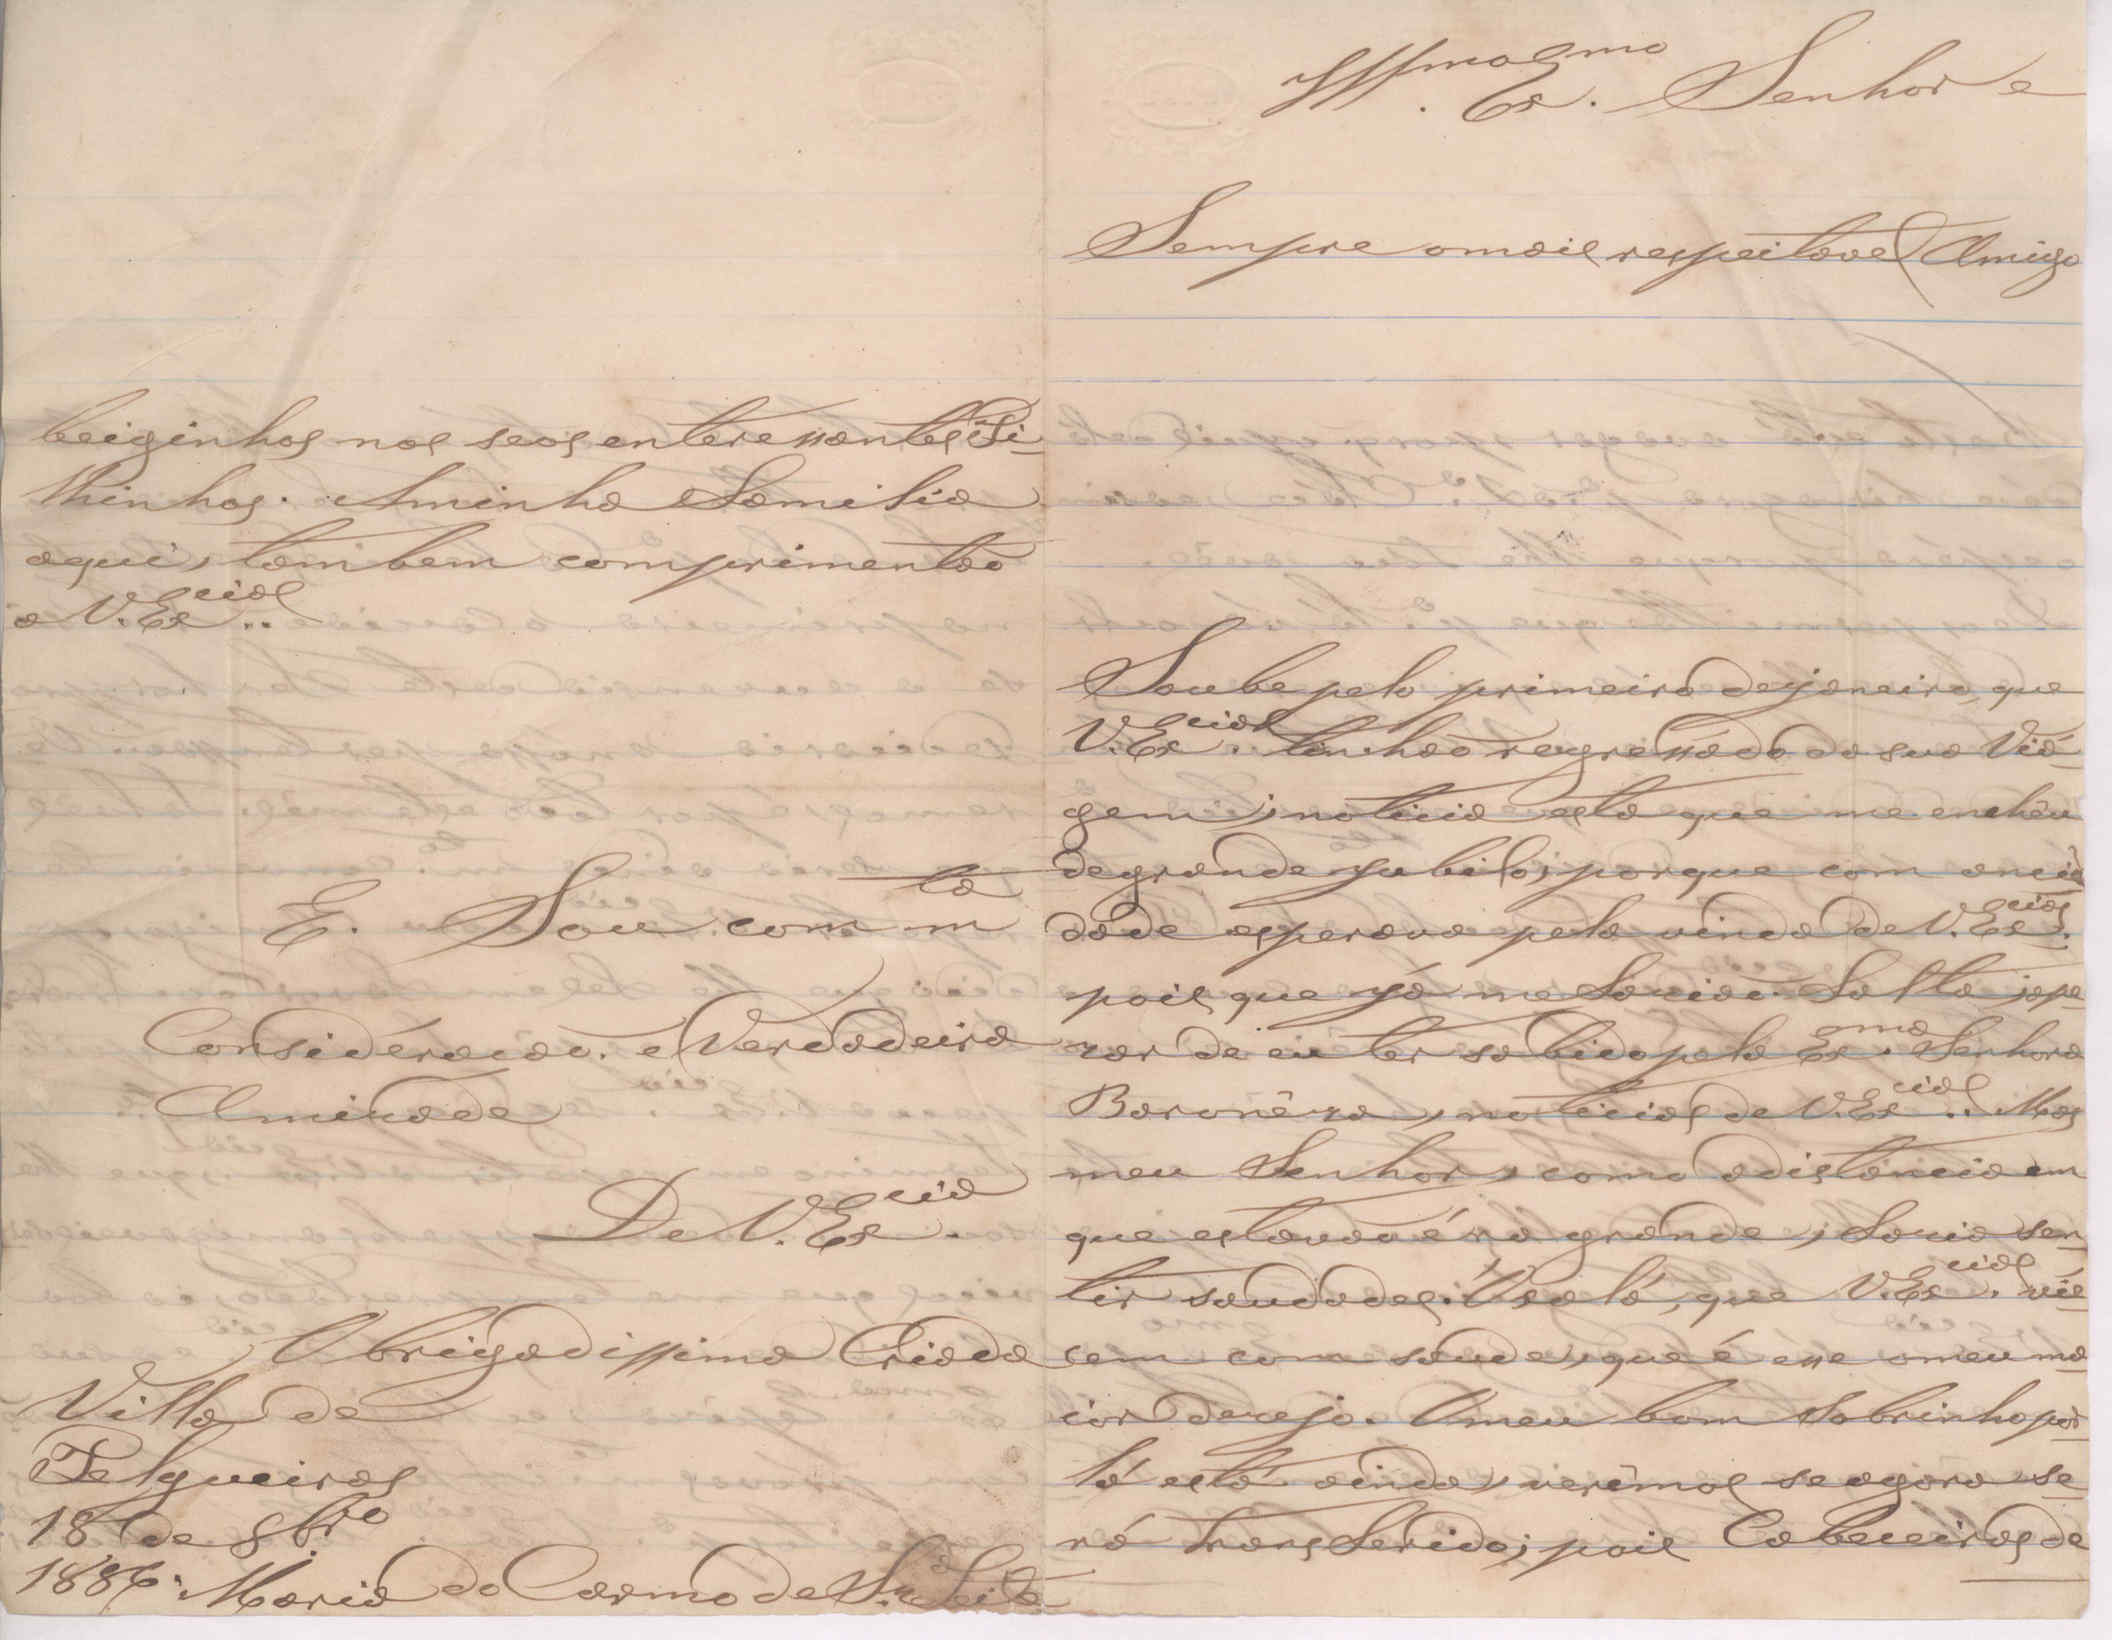 Illmo Exmo. Senhor e
Sempre o mais respeitavel Amigo
Soube pelo primeiro de janeiro, que
V. Excias. tinhão regressádo da sua Viá-
gem, noticia esta que me enchêu
de grande jubilo; porque com ancie
dade esperava pela vinda de V. Excias.
pois que já me faziao falta, ape
zar de eu ter sabido pela Exma. Senhora
Baronêza, noticias de V. Excias.. Mas
meu Senhor, como a distancia em
que estavão éra grande, fazia sen
tir saudades. Oxalá, que V. Excias. viés
sem com saude, que é esse o meu ma
ior dezejo. O meu bom Sobrinho por
lá está ainda, verêmos se agora se
rá transferido; pois Cabeceiras de
beiginhos nos seos enteressantes Fi-
lhinhos. A minha Familia
aqui, tambem comprimentão
a V. Excias..
E. Sou com mta
Considéração. e Verdadeira
Amizade
De V. Excia.
Obrigadissima Criada
Villa de
Felgueiras
18 de 8bro
1886. Maria do Carmo de Sza Leite